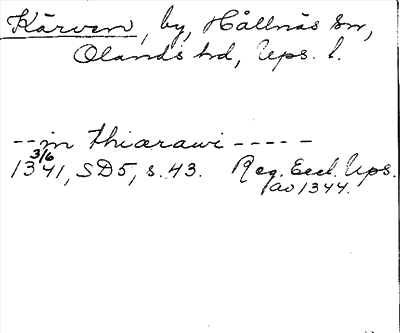 Kärven, by, Hållnäs sn,
Olands hd, Ups. l.
-- in thiærawi -----
13 3/6 41, SD5, s. 43. Reg. Eccl. Ups.
ao 1344.